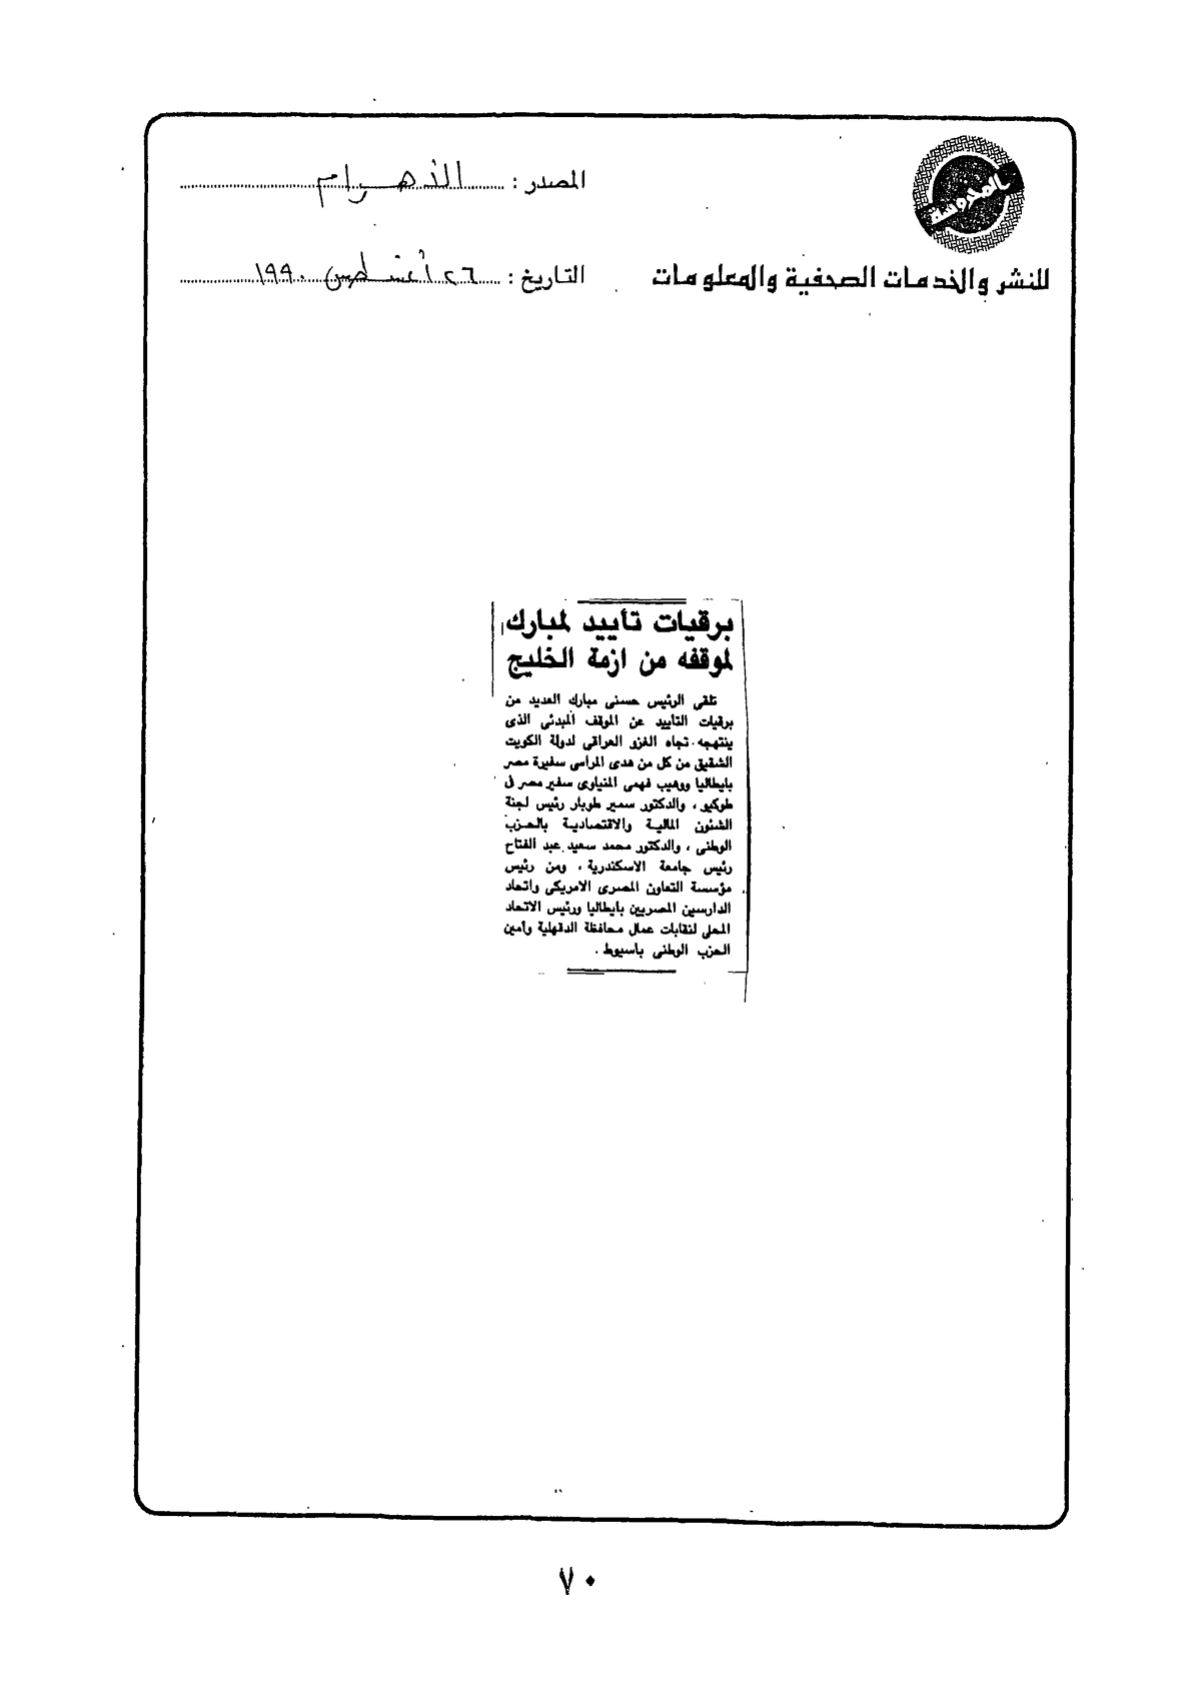 المحروسة
للنشر والخدمات الصحفية والمعلومات
المصدر : الأهرام
التاريخ : ٢٦ أغسطس ١٩٩٠
برقيات تأييد لمبارك
لموقفه من ازمة الخليج
تلقى الرئيس حسنى مبارك العديد من
برقيات التأييد عن الموقف المبدئى الذى
ينتهجه تجاه الغزو العراقى لدولة الكويت
الشقيق من كل من هدى المراسى سفيرة مصر
بايطاليا ووهيب فهمى المنياوى سفير مصر فى
طوكيو ، والدكتور سمير طوبار رئيس لجنة
الشئون المالية والاقتصادية بالحزب
الوطنى ، والدكتور محمد سعيد عبد الفتاح
رئيس جامعة الاسكندرية ، ومن رئيس
مؤسسة التعاون المصرى الامريكى واتحاد
الدارسين المصريين بايطاليا ورئيس الاتحاد
المحلى لنقابات عمال محافظة الدقهلية وأمين
الحزب الوطنى باسيوط .
٧٠